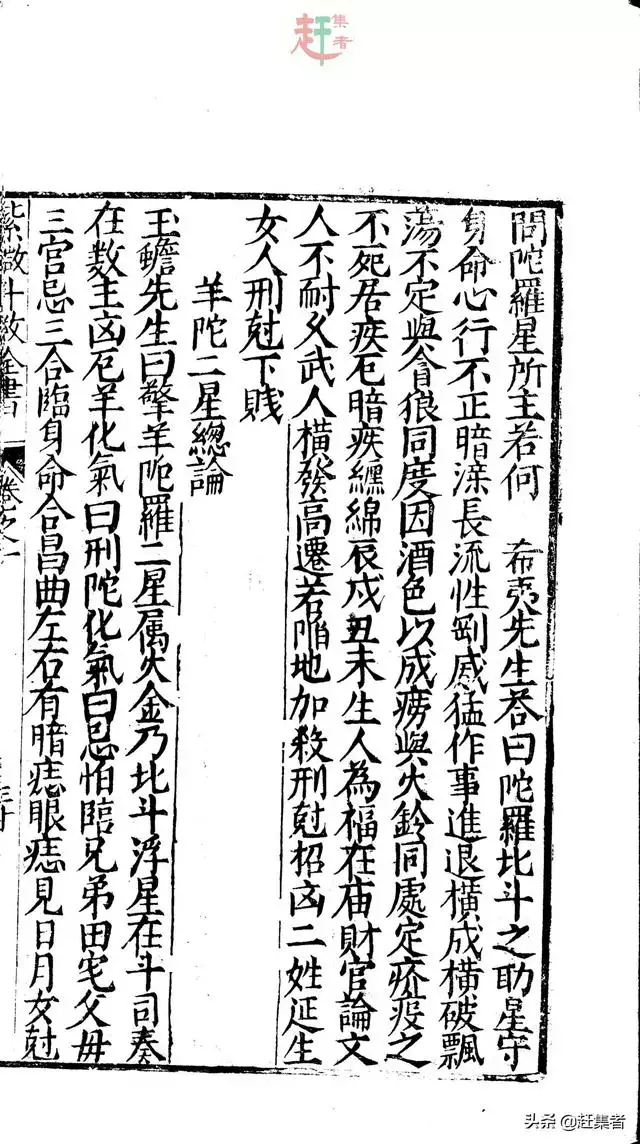 赶集者
問陀羅星所主若何　希夷先生荅曰陀羅北斗之助星守
身命心行不正暗淚長流性剛威猛作事進退橫成橫破飄
蕩不定與貪狼同度因酒色以成癆與火鈴同處定疥疫之
不死居疾厄暗疾纏綿辰戍丑未生人為福在庙財官論文
人不耐久武人橫發高遷若陷地加殺刑尅招凶二姓延生
女人刑尅下賤
羊陀二星總論
玉蟾先生曰擎羊陀羅二星属火金乃北斗浮星在斗司奏
在数主凶厄羊化氣曰刑陀化氣曰忌怕臨兄弟田宅父母
三宮忌三合臨身命合昌曲左右有暗痣眼痣見日月女尅
紫微斗数全書　卷之一
三十
头条 @赶集者